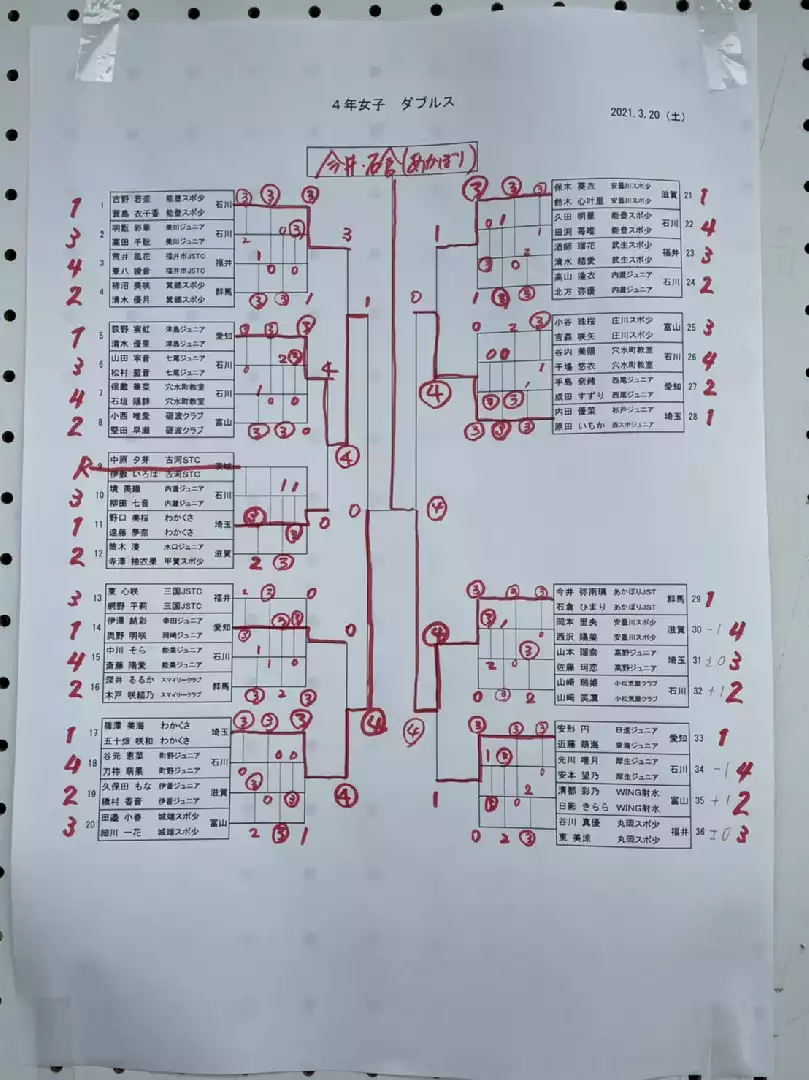 4年女子 ダブルス
2021.3.20(土)
今井・石倉(あかぼり)
1 1 吉野 若奈 能登スポ少 石川
能登スポ少
3 2 美川ジュニア 石川
美川ジュニア
4 3 荒井 風花 福井市JSTC 福井
福井市JSTC
2 4 柿沼 美咲 箕郷スポ少 群馬
清水 優月 箕郷スポ少
1 5 荻野 実虹 津島ジュニア 愛知
清水 優里 津島ジュニア
3 6 山田 寧音 七尾ジュニア 石川
松村 藍音 七尾ジュニア
4 7 穴水町教室 石川
石垣 陽耕 穴水町教室
2 8 小西 唯愛 砺波クラブ 富山
堅田 早瀬 砺波クラブ
R 9 中原 夕芽 古河STC 茨城
伊敷 いろは 古河STC
3 10 境 美織 内灘ジュニア 石川
柳田 七音 内灘ジュニア
1 11 野口 美桜 わかくさ 埼玉
遠藤 夢奈 わかくさ
2 12 水口ジュニア 滋賀
寺澤 柚衣果 甲賀スポ少
3 13 東 心咲 三国JSTC 福井
網野 平莉 三国JSTC
1 14 伊澤 結彩 幸田ジュニア 愛知
奥野 明咲 岡崎ジュニア
4 15 中川 そら 能美ジュニア 石川
斎藤 陽愛 能美ジュニア
2 16 深井 るるか スマイリークラブ 群馬
木戸 咲結乃 スマイリークラブ
1 17 篠澤 美海 わかくさ 埼玉
五十畑 咲和 わかくさ
4 18 谷元 恵菜 町野ジュニア 石川
刀祢 萌果 町野ジュニア
2 19 久保田 もな 伊香ジュニア 滋賀
磯村 香音 伊香ジュニア
3 20 田邉 小春 城端スポ少 富山
細川 一花 城端スポ少
保木 英衣 安曇川スポ少 滋賀 21 1
鈴木 心叶里 安曇川スポ少
久田 明里 能登スポ少 石川 22 4
田渕 苺唯 能登スポ少
酒師 瑠花 武生スポ少 福井 23 3
清水 結愛 武生スポ少
高山 逢衣 内灘ジュニア 石川 24 2
北方 弥優 内灘ジュニア
小谷 珠桜 庄川スポ少 富山 25 3
吉森 咲矢 庄川スポ少
谷内 美陽 穴水町教室 石川 26 4
干場 悠衣 穴水町教室
手島 奈緒 西尾ジュニア 愛知 27 2
成田 すずり 西尾ジュニア
内田 優菜 杉戸ジュニア 埼玉 28 1
原田 いちか 西スポジュニア
今井 弥南璃 あかぼりJST 群馬 29 1
石倉 ひまり あかぼりJST
岡本 里央 安曇川スポ少 滋賀 30 -1 4
西沢 陽菜 安曇川スポ少
山本 瑠奈 高野ジュニア 埼玉 31 ±0 3
佐藤 珂恋 高野ジュニア
山崎 瑞姫 小松荒屋クラブ 石川 32 +1 2
山崎 小松荒屋クラブ
安形 円 日進ジュニア 愛知 33 1
近藤 萌海 東海ジュニア
先川 唯月 厚生ジュニア 石川 34 -1 4
安本 望乃 厚生ジュニア
清都 彩乃 WING射水 富山 35 +1 2
日影 きらら WING射水
谷川 真優 丸岡スポ少 福井 36 ±0 3
東 美涼 丸岡スポ少